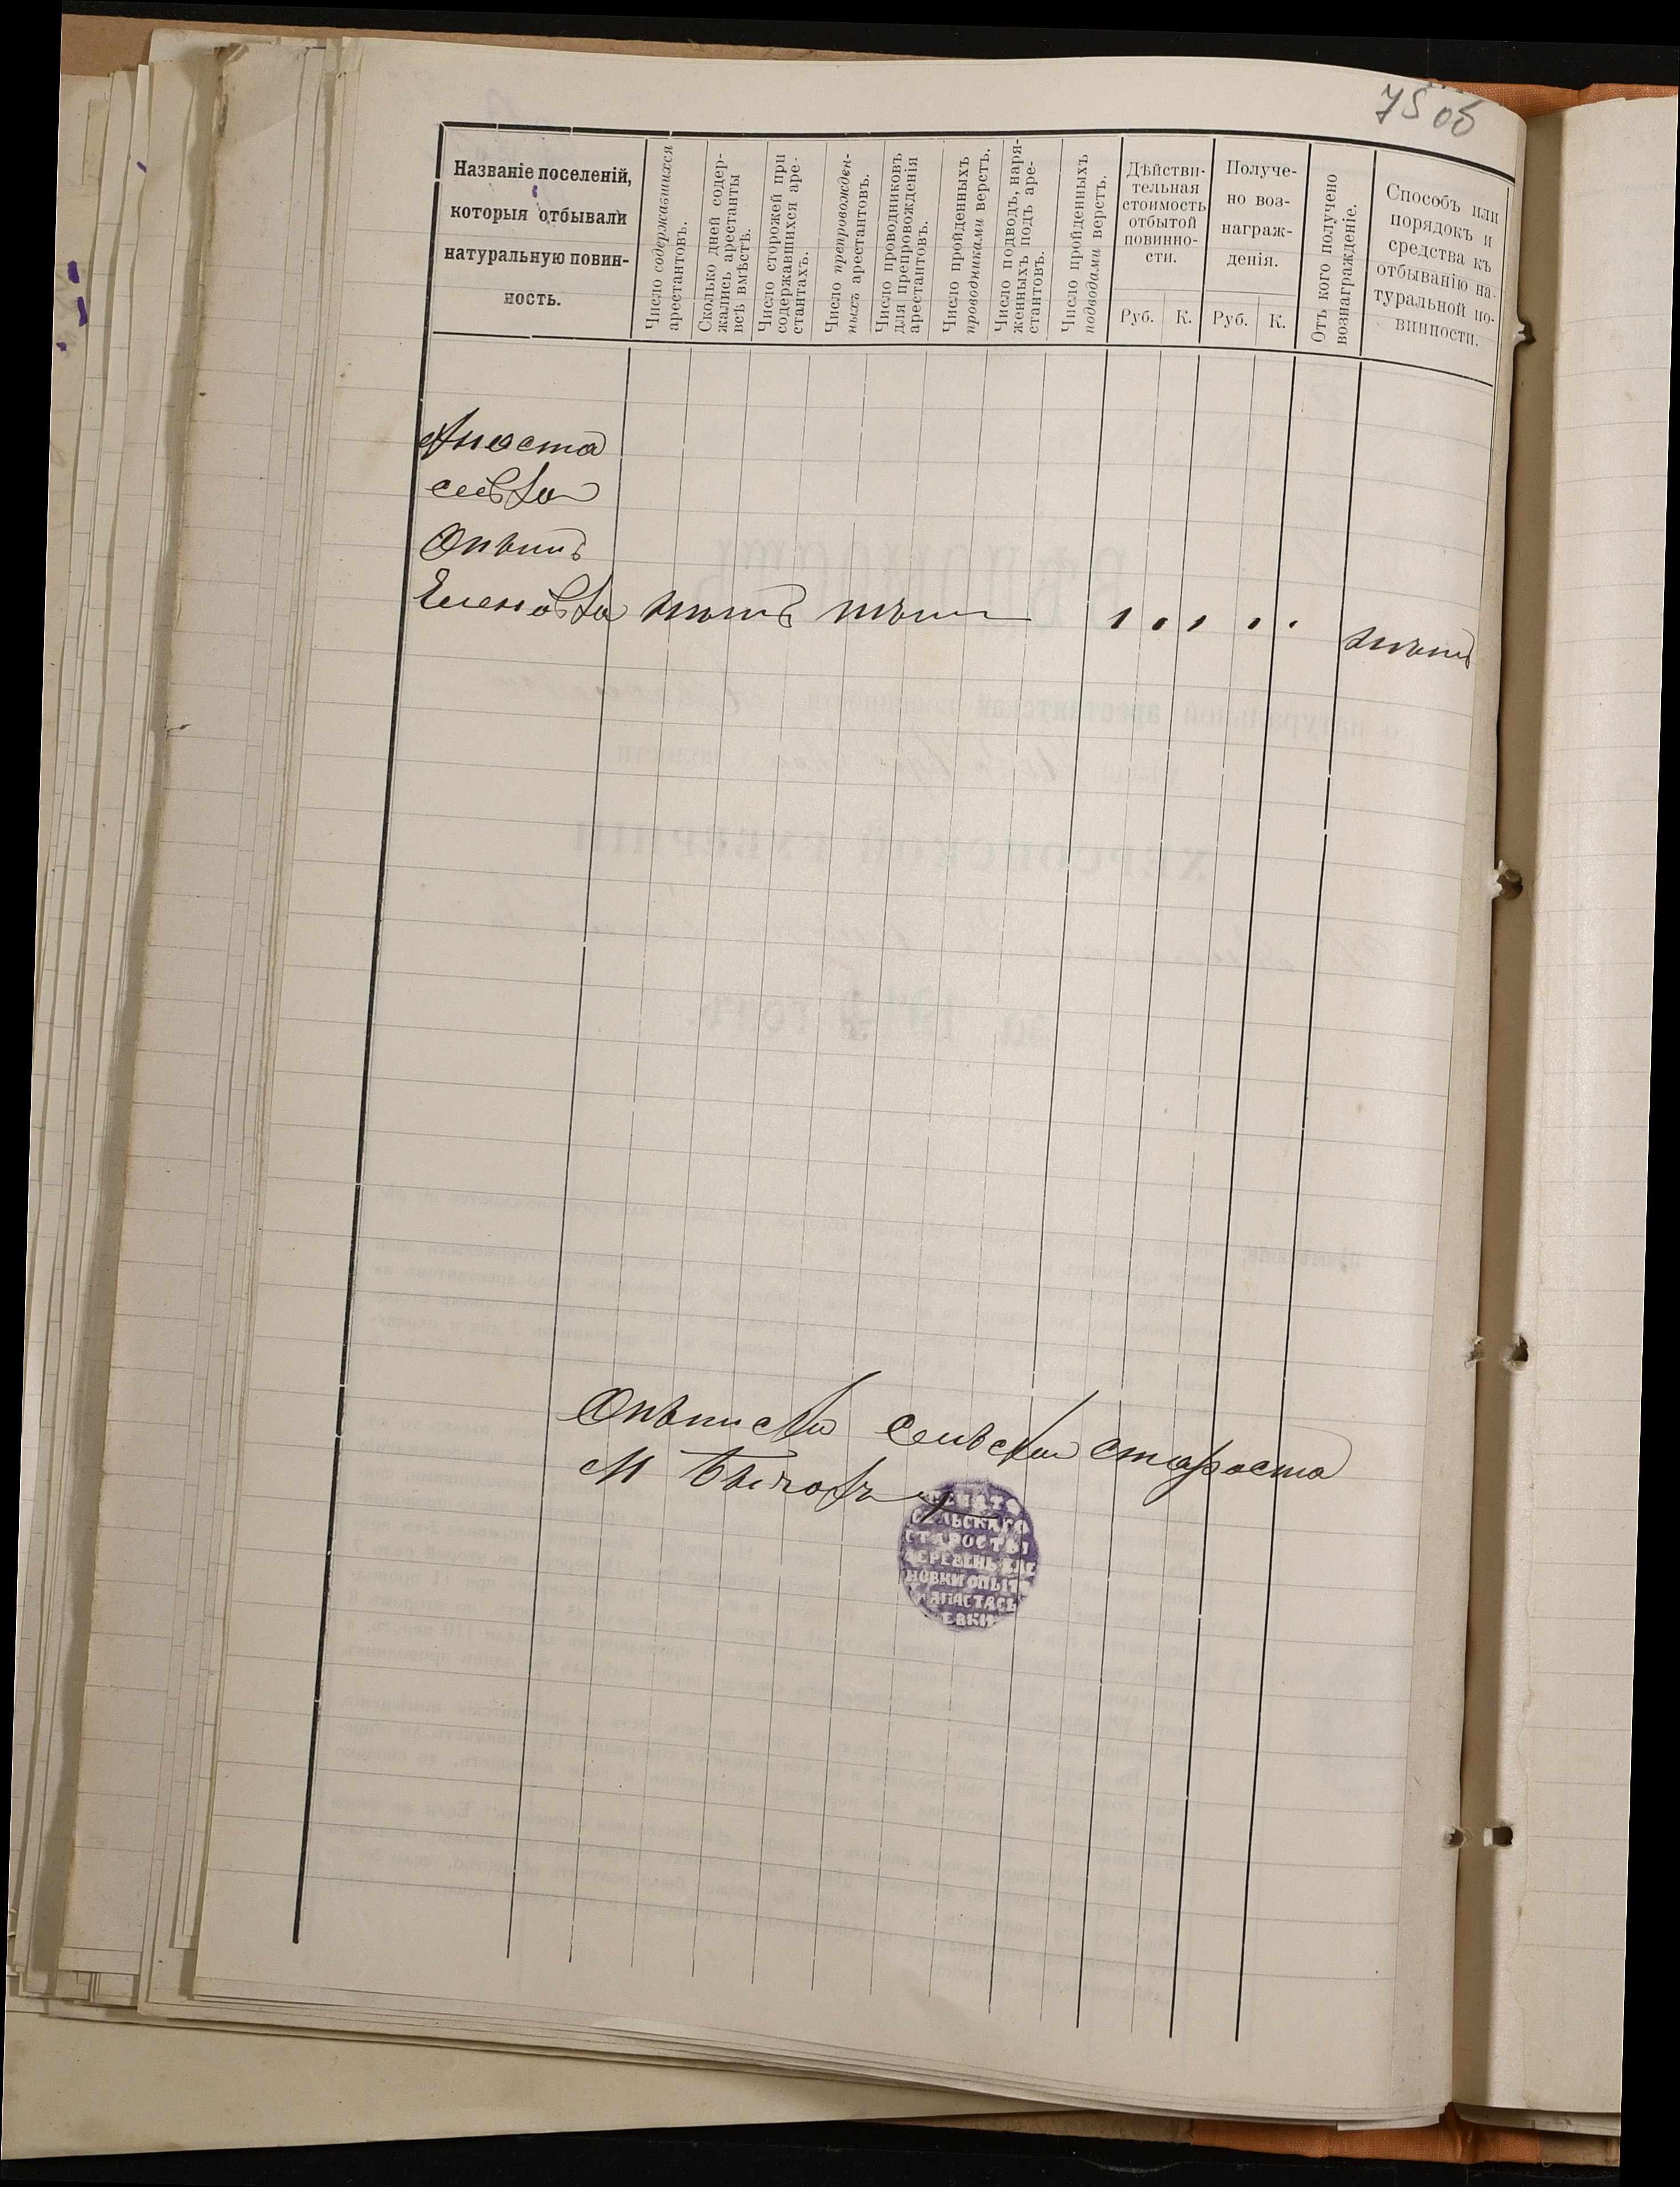 75 об
Названіе поселеній,
которыя отбывали
натуральную повин-
ность.
Число содержавшихся
арестантовъ.
Сколько дней содер-
жались арестанты
всѣ вмѣстѣ.
Число сторожей при
содержавшихся аре-
стантахъ.
Число препровожден-
ныхъ арестантовъ.
Число проводниковъ
для препровожденія
арестантовъ.
Число пройденныхъ
проводниками верстъ.
Число подводъ, наря-
женныхъ подъ аре-
стантовъ.
Число пройденныхъ
подводами верстъ.
Дѣйстви-
тельная
стоимость
отбытой
повинно-
сти.
Руб. К.
Получе-
но воз-
награж-
денія.
Руб. К.
Отъ кого получено
вознагражденіе.
Способъ или
порядокъ и
средства къ
отбыванію на-
туральной по-
винности.
Анаста
сіевка
Опытъ
Еленовка нѣтъ нѣтъ " " " " " нѣтъ
Опытискій Сельскій староста
М Бычокъ
ПЕЧАТЬ
СЕЛЬСКАГО
СТАРОСТЫ
ДЕРЕВЕНЬ ЕЛЕ
НОВКИ ОПЫТЪ
И АНАСТАСЬ
ЕВКИ
ХЕРСОНСКОЙ ГУБЕРНІИ